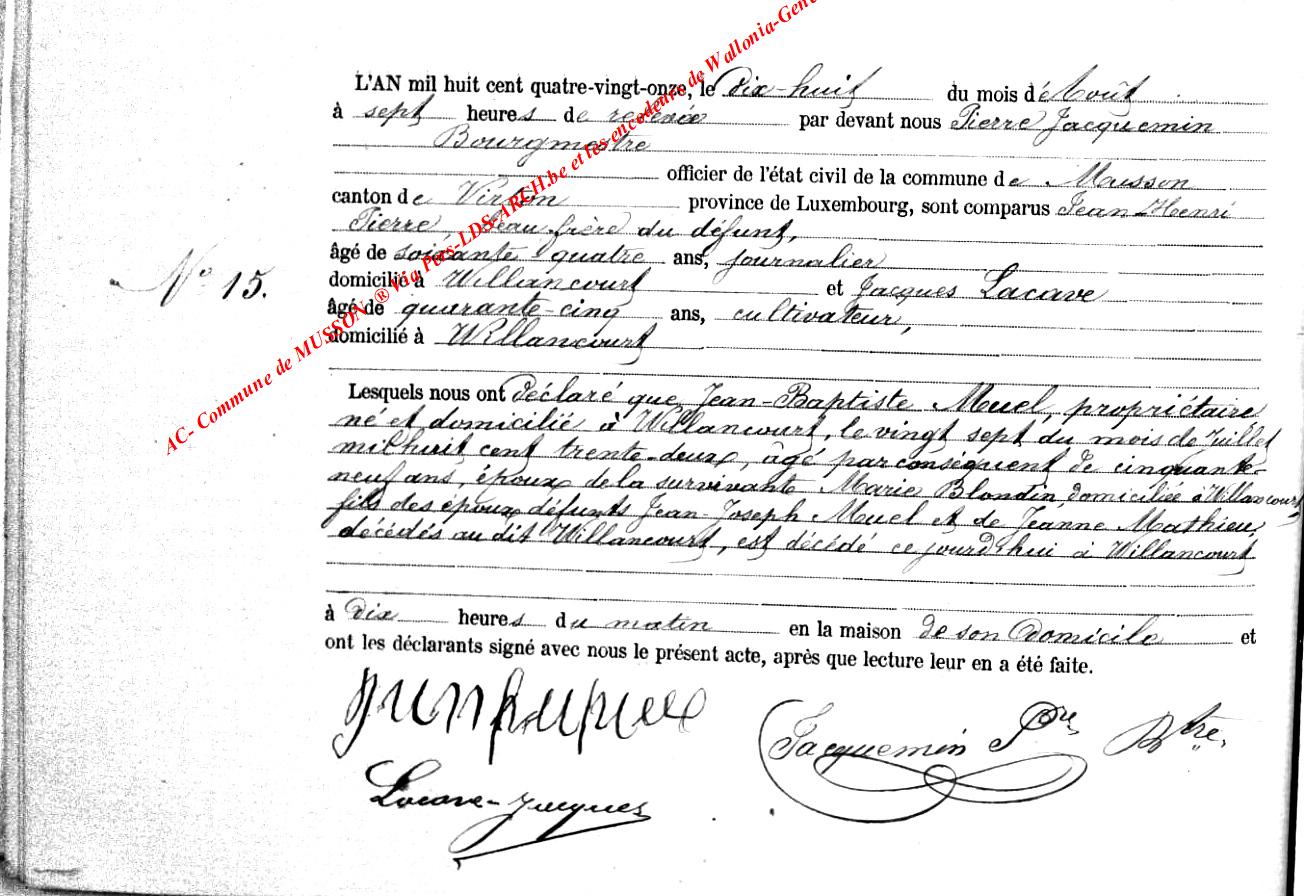 L'AN mil huit cent quatre-vingt-onze, le Dix-huit du mois d'Août
à sept heures de relevée par devant nous Pierre Jacquemin
Bourgmestre
officier de l'état civil de la commune de Musson
canton de Virton province de Luxembourg, sont comparus Jean Henri
Pierre, beau frère du défunt,
âgé de soixante quatre ans, journalier
domicilié à Willancourt et Jacques Lacave
âgé de quarante-cinq ans, cultivateur,
domicilié à Willancourt
N° 15.
Lesquels nous ont Déclaré que Jean-Baptiste Muel, propriétaire
né et domicilié à Willancourt, le vingt sept du mois de Juillet
mil huit cent trente-deux, âgé par conséquent de cinquante-
neuf ans, époux de la survivante Marie Blondin domiciliée à Willancourt
fils des époux défunts Jean-Joseph Muel et de Jeanne Mathieu,
décédés au dit Willancourt, est décédé ce jourd'hui à Willancourt
à Dix heures du matin en la maison de son Domicile et
ont les déclarants signé avec nous le présent acte, après que lecture leur en a été faite.
Jacquemin Pre Btre,
Lacave-Jacques
AC- Commune de MUSSON ® Via Pers-LDS-ARCH.be et les encodeurs de Wallonia-Gene